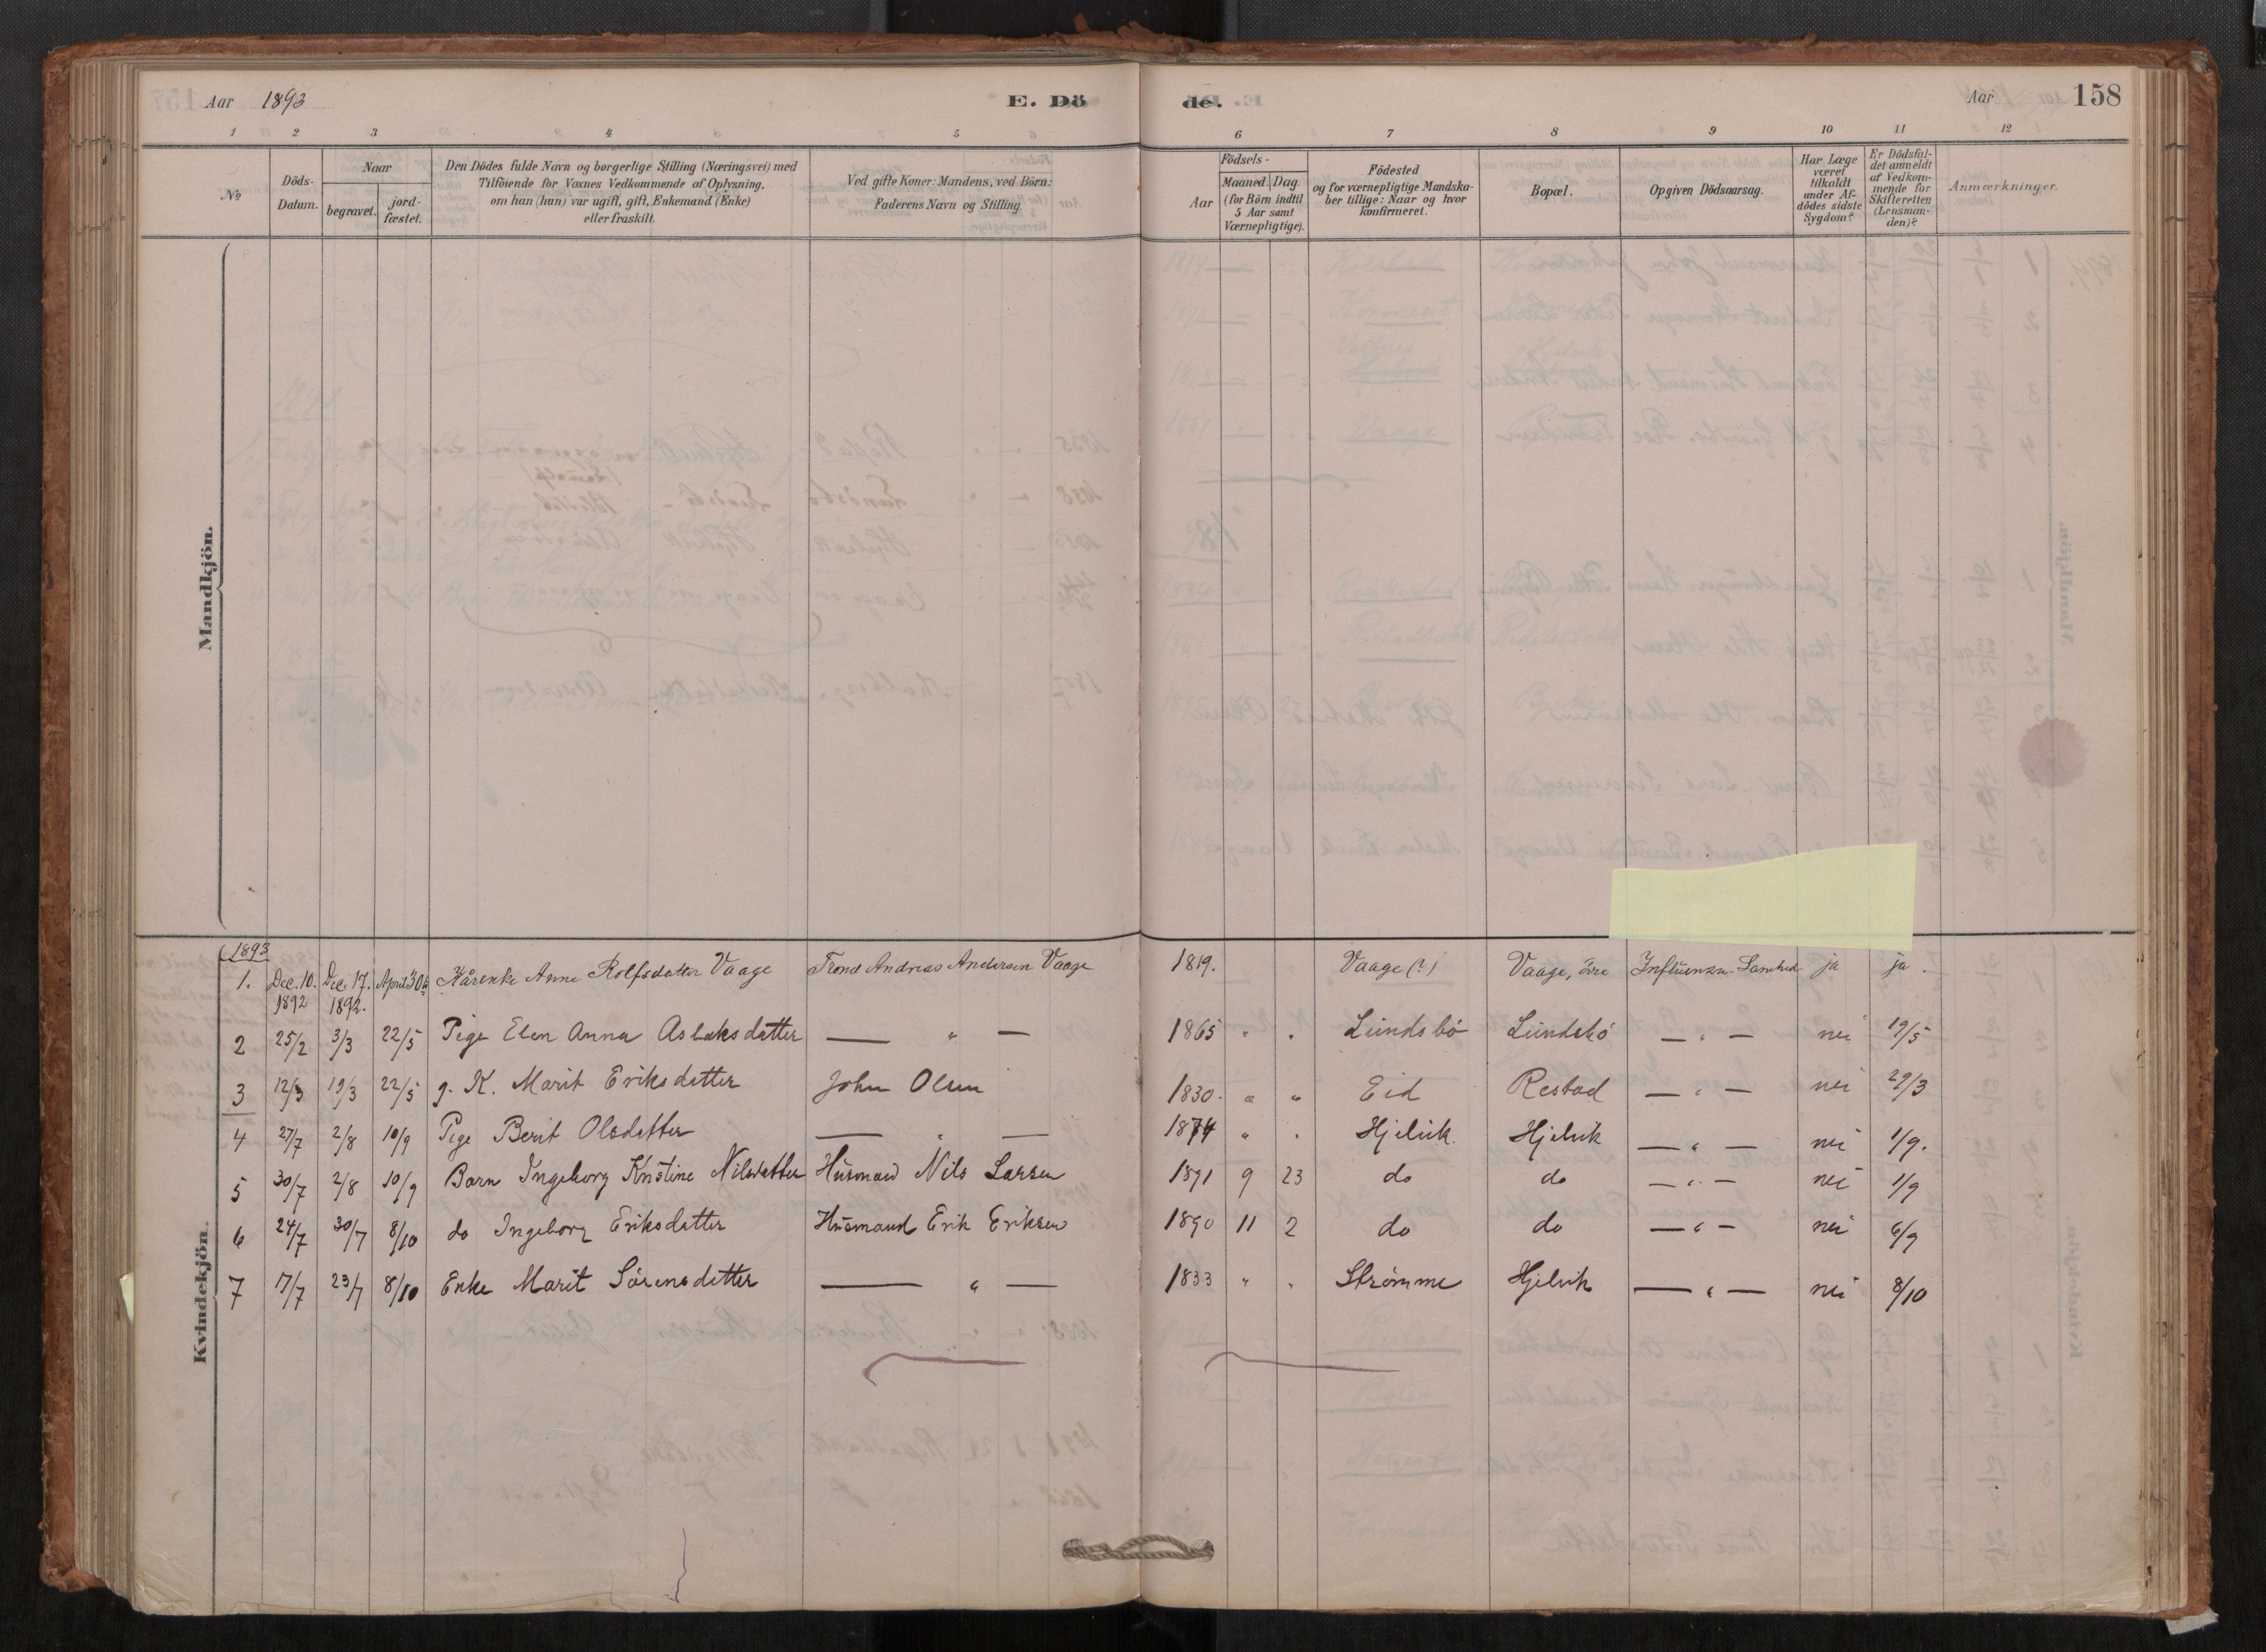 Aar 1893 E. Dö de. Aar 158
1 2 3 4 5 6 7 8 9 10 11 12
№
Döds-Datum.
Naar
begravet.
jord-fæstet.
Den Dödes fulde Navn og borgerlige Stilling (Næringsvei) med
Tilföiende for Voxnes Vedkommende af Oplysning,
om han (hun) var ugift, gift, Enkemand (Enke)
eller fraskilt.
Ved gifte Koner: Mandens, ved Börn:
Faderens Navn og Stilling.
Aar
Födsels-
Maaned. Dag.
(for Börn indtil
5 Aar samt
Værnepligtige).
Födested
og for værnepligtige Mandska-
ber tillige: Naar og hvor
konfirmeret.
Bopæl.
Opgiven Dödsaarsag.
Har Læge
været
tilkaldt
under Af-
dödes sidste
Sygdom?
Er Dödsfal-
det anmeldt
af Vedkom-
mende for
Skifteretten
(Lensman-
den)?
Anmærkninger.
Mandkjön.
Kvindekjön.
1893
1. Dec. 10. 1892 Dec. 17. 1892. April 30 Anne Rolfsdatter Vaage Trond Andreas Andersen Vaage 1819. Vaage (?) Vaage, övre Influenza ja ja.
2 25/2 3/3 22/5 Pige Elen Anna Aslaksdatter — " — 1865 " " Lundsbö Lundsbö — " — nei 19/5
3 12/3 19/3 22/5 g. K. Marit Eriksdatter John Olsen 1830. " " Eid Restad — " — nei 29/3
4 27/7 2/8 10/9 Pige Berit Olsdatter — " — 1874 " " Hjelvik. Hjelvik — " — nei 1/9.
5 30/7 2/8 10/9 Barn Ingeborg Kristine Nilsdatter Husmand Nils Larsen 1891 9 23 do do — " — nei 1/9
6 24/7 30/7 8/10 do Ingeborg Eriksdatter Husmand Erik Eriksen 1890 11 2 do do — " — nei 6/9
7 17/7 23/7 8/10 Enke Marit Sörensdatter — " — 1833 " " Strömme Hjelvik — " — nei 8/10